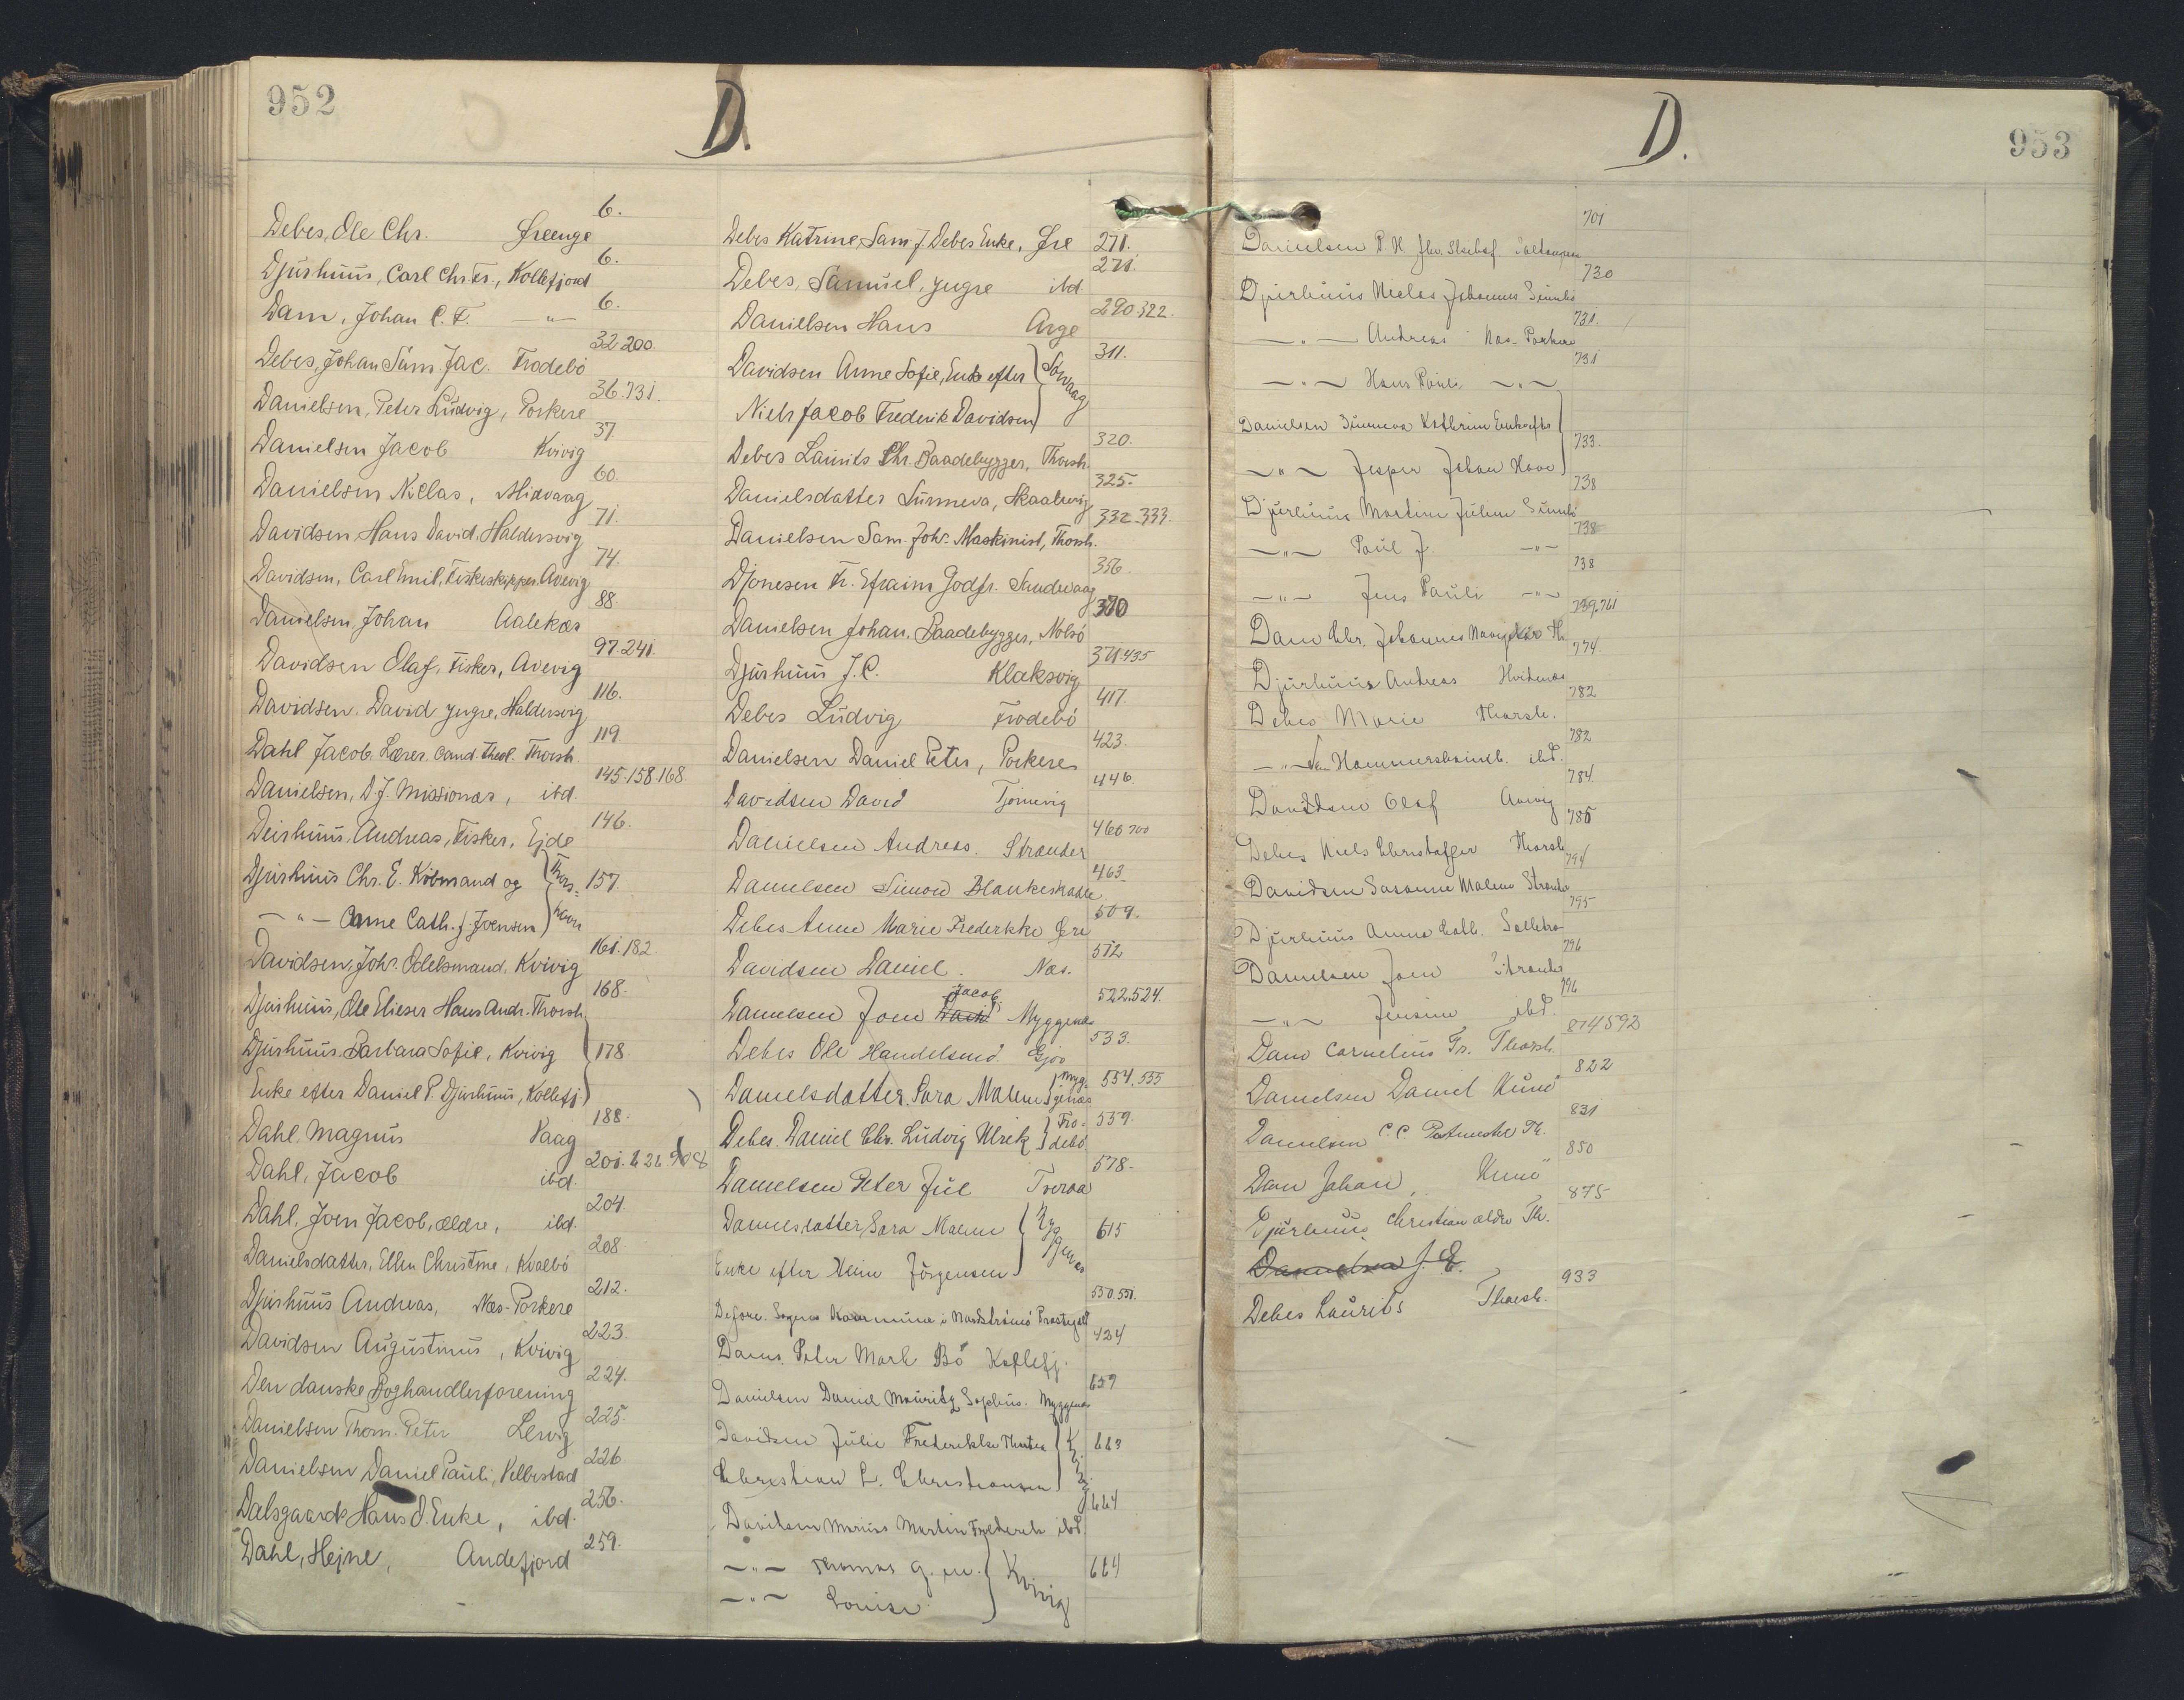 952
D.
Debes, Ole Chr. Greenge 6.
Djurhuus, Carl Chr. Fr., Kollefjord 6.
Dam, Johan C. F. —"— 6.
Debes, Johan Sam. Jac. Frodebö 32.200.
Danielsen, Peter Ludvig, Porkere 36.731.
Danielsen Jacob Kvivig 37.
Danielsen Niclas, Midvaag 60.
Davidsen, Hans David, Haldersvig 71.
Davidsen, Carl Emil, Fiskeskipper Avevig 74.
Danielsen, Johan Aalekær 88.
Davidsen Olaf, Fisker, Avevig 97.241.
Davidsen, David yngre, Haldersvig 116.
Dahl Jacob, Lærer, Cand. theol. Thorsh. 119.
Danielsen, D. J. Missionær, ibd. 145.158.168.
Deirhuus, Andreas, Fisker, Ejde 146.
Djurhuus Chr. E. Köbmand og
—"— Anne Cath. f. Joensen } Thorshavn 157.
Davidsen, Johs. Odelsmand, Kvivig 161.182.
Djurhuus, Ole Elieser Hans Andr. Thorsh. 168.
Djurhuus, Barbara Sofie, Kvivig
Enke efter Daniel P. Djurhuus, Kollefj. } 178.
Dahl, Magnus Vaag 188.
Dahl, Jacob ibd. 201.
Dahl, Joen Jacob, ældre, ibd. 204.
Danielsdatter, Ellen Christine, Kvalbö 208
Djurhuus Andreas, Næs-Porkere 212.
Davidsen Augustinus, Kvivig 223.
Den danske Boghandlerforening 224.
Danielsen Thom. Peter Lervig 225.
Danielsen Daniel Pauli, Velbestad 226
Dalsgaard Hans D. Enke, ibd. 256.
Dahl, Hejne, Andefjord 259.
Debes Katrine, Sam. J. Debes Enke, Gre 271.
Debes, Samuel, yngre ibd. 271.
Danielsen Hans Arge 290.322.
Davidsen Anne Sofie, Enke efter
Niels Jacob Frederik Davidsen } Sörvaag 311.
Debes Laurits Chr. Baadebygger, Thorsh. 320.
Danielsdatter Sunneva, Skaalevig 325.
Danielsen Sam. Johs. Maskinist, Thorsh. 332.333.
Djonesen Fr. Efraim Godfr. Sandevaag 356.
Danielsen Johan, Baadebygger, Nolsö 370
Djurhuus J. C. Klaksvig 371.435
Debes Ludvig Frodebö 417.
Danielsen Daniel Peter, Porkere 423.
Davidsen David Tjörnevig 446.
Danielsen Andreas. Strænder 460 700
Danielsen Simon Blankeskaale 463
Debes Anne Marie Frederikke Gre 509.
Davidsen Daniel. Næs. 512
Danielsen Joen Jacob Myggenæs 522.524.
Debes Ole Handelsmd. Gjov 533.
Danielsdatter, Sara Malene } Myggenæs 554.555
Debes. Daniel Chr. Ludvig Ulrik } Frodebö. 559.
Danielsen Peter Jul Tveraa 578.
Danielsdatter, Sara Malene
Enke efter Heine Jörgensen } Myggenæs 615
Kommune i Nordströmö Præstegjeld 550.551.
Dam Peter Mark Bö Kollefj. 424
Danielsen Daniel Mouritz Sophus. Myggenæs 659
Davidsen Julie Frederikke Thortea
Christian L. Christiansen } Kvivig 663
Davidsen Marius Martin Frederik ibd. 664
—"— Thomas G. m.
—"— Louise } Kvivig 664
D.
953
Danielsen P. N. Saltangeraa 701
Djurhuus Niclas Johannes Sumbö 730
—"— Andreas Næs-Porkere 731.
—"— Hans Pauli —"— 731
Danielsen Sunneva Kathrine Enke efter
—"— Jesper Johan Hove } 733.
Djurhuus Martin Julius Sumbö 738
—"— Paul J —"— 738
—"— Jens Pauli —"— 738
Dam Chr. Johannes Th. 739.761
Djurhuus Andreas Hvidenæs 774.
Debes Marie Thorsh. 782
—"— Hammershaimb. ibd. 782
Davidsen Olaf Avevig 784
Debes Niels Christoffer Thorsh. 785
Davidsen Sosanne Malene Strænder 794
Djurhuus Anna Cath. Selletræ 795
Danielsen Joen Strænder 796
—"— Jensine ibd. 796
Dam Cornelius Fr. Thorsh. 814 592
Danielsen Daniel Kunö 822
Danielsen C. C. Th. 831
Dam Johan, Kunö 850
Djurhuus Christian ældre Th. 875
Danielsen J. E.
Debes Laurits Thorsh. 933